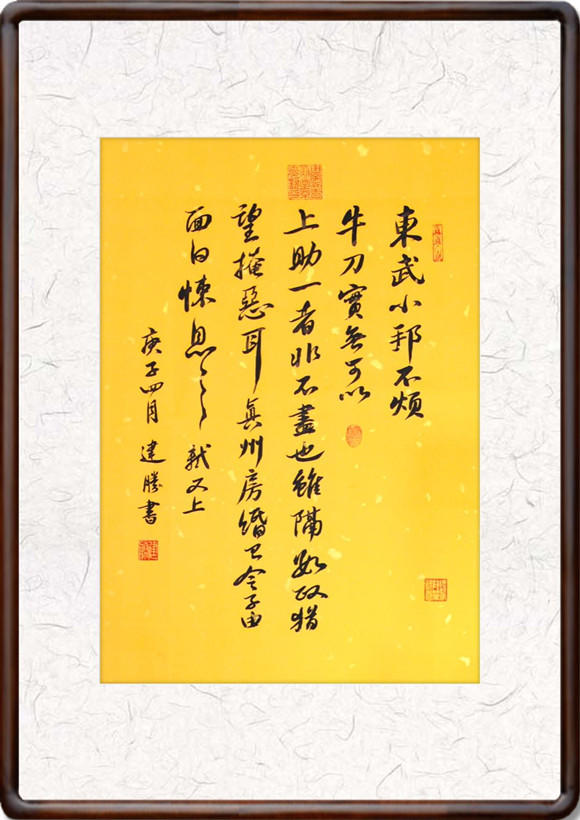 東武小邦不煩
牛刀實無可以
上助一者非不盡也雖隔數政猶
望掩惡耳真州房緡已令子由
面白悚息〻〻軾又上
庚子四月建勝書